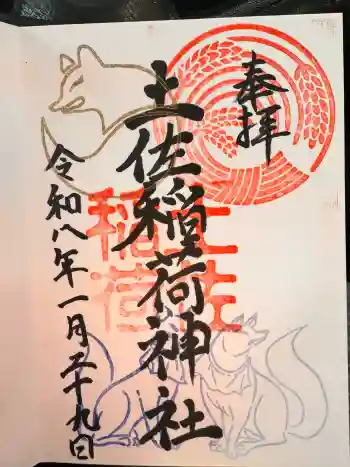 奉拝
土佐稲荷神社
土佐
稲荷
令和八年一月二十九日